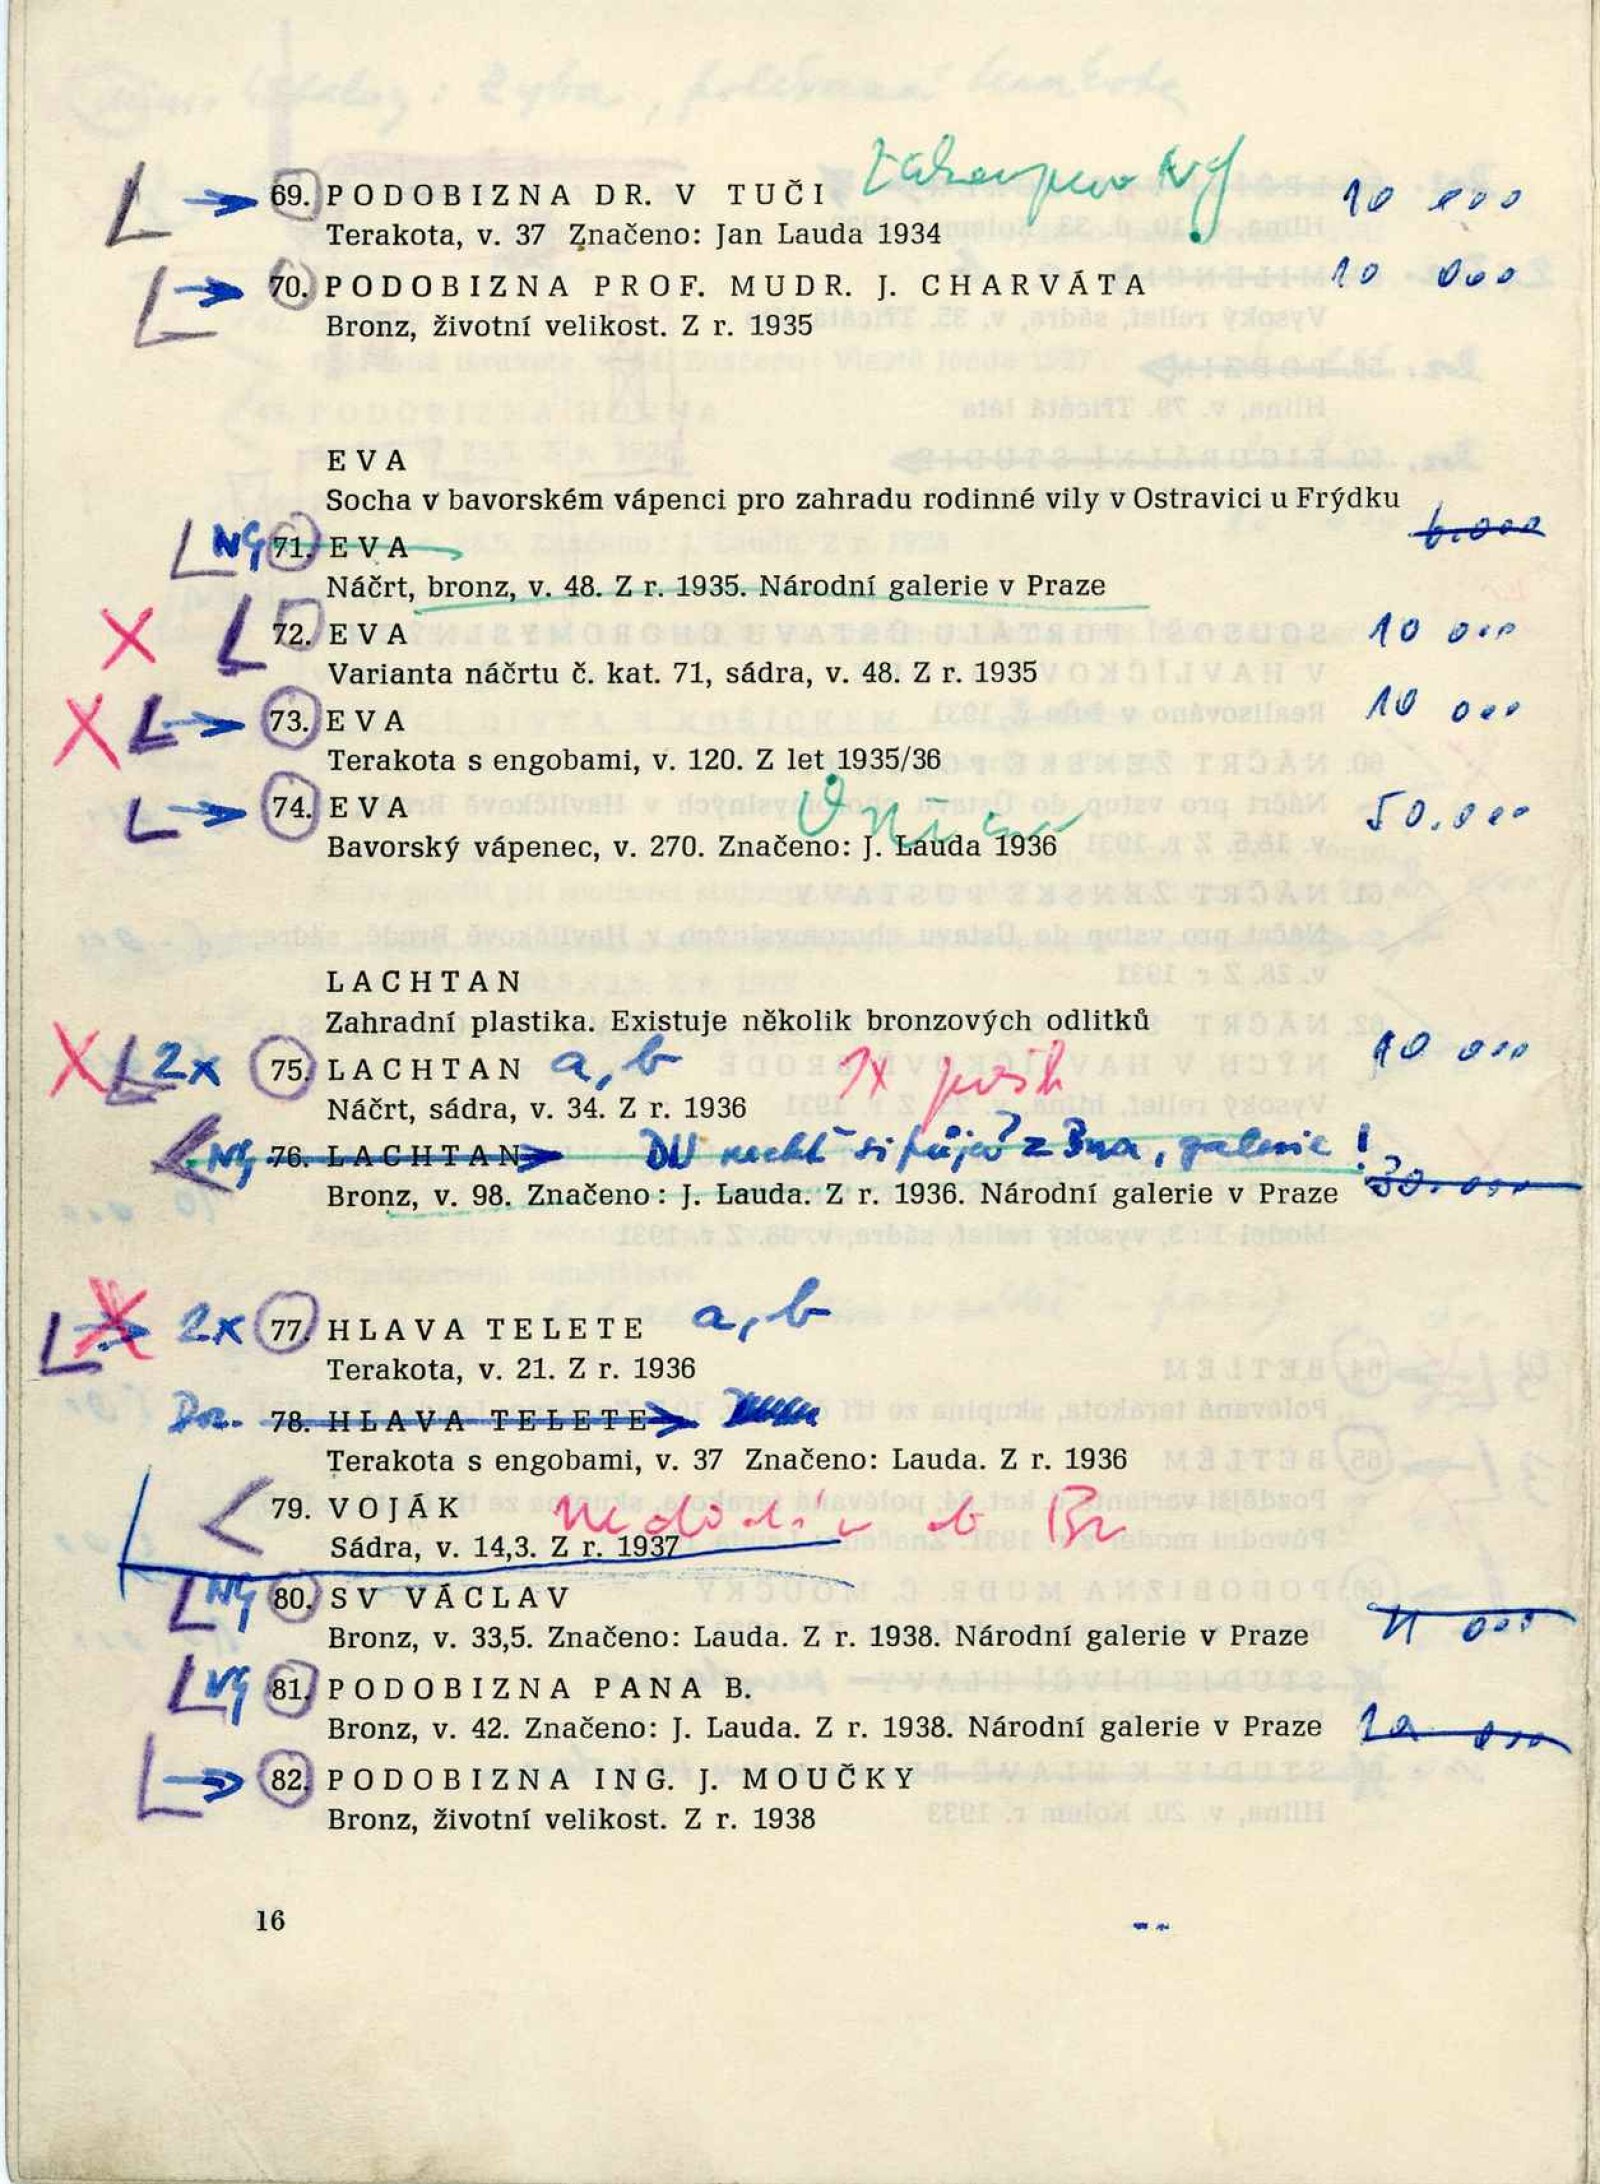 69. PODOBIZNA DR. V TUČI 10 000
Terakota, v. 37 Značeno: Jan Lauda 1934
70. PODOBIZNA PROF. MUDR. J. CHARVÁTA 10 000
Bronz, životní velikost. Z r. 1935
EVA
Socha v bavorském vápenci pro zahradu rodinné vily v Ostravici u Frýdku
NG 71. EVA 6.000
Náčrt, bronz, v. 48. Z r. 1935. Národní galerie v Praze
72. EVA 10 000
Varianta náčrtu č. kat. 71, sádra, v. 48. Z r. 1935
73. EVA 10 000
Terakota s engobami, v. 120. Z let 1935/36
74. EVA 50.000
Bavorský vápenec, v. 270. Značeno: J. Lauda 1936
LACHTAN
Zahradní plastika. Existuje několik bronzových odlitků
2x 75. LACHTAN a, b 1x 10 000
Náčrt, sádra, v. 34. Z r. 1936
NG 76. LACHTAN galerie!
Bronz, v. 98. Značeno: J. Lauda. Z r. 1936. Národní galerie v Praze 30.000
2x 77. HLAVA TELETE a, b
Terakota, v. 21. Z r. 1936
78. HLAVA TELETE
Terakota s engobami, v. 37 Značeno: Lauda. Z r. 1936
79. VOJÁK
Sádra, v. 14,3. Z r. 1937
NG 80. SV VÁCLAV
Bronz, v. 33,5. Značeno: Lauda. Z r. 1938. Národní galerie v Praze
NG 81. PODOBIZNA PANA B.
Bronz, v. 42. Značeno: J. Lauda. Z r. 1938. Národní galerie v Praze
82. PODOBIZNA ING. J. MOUČKY
Bronz, životní velikost. Z r. 1938
16